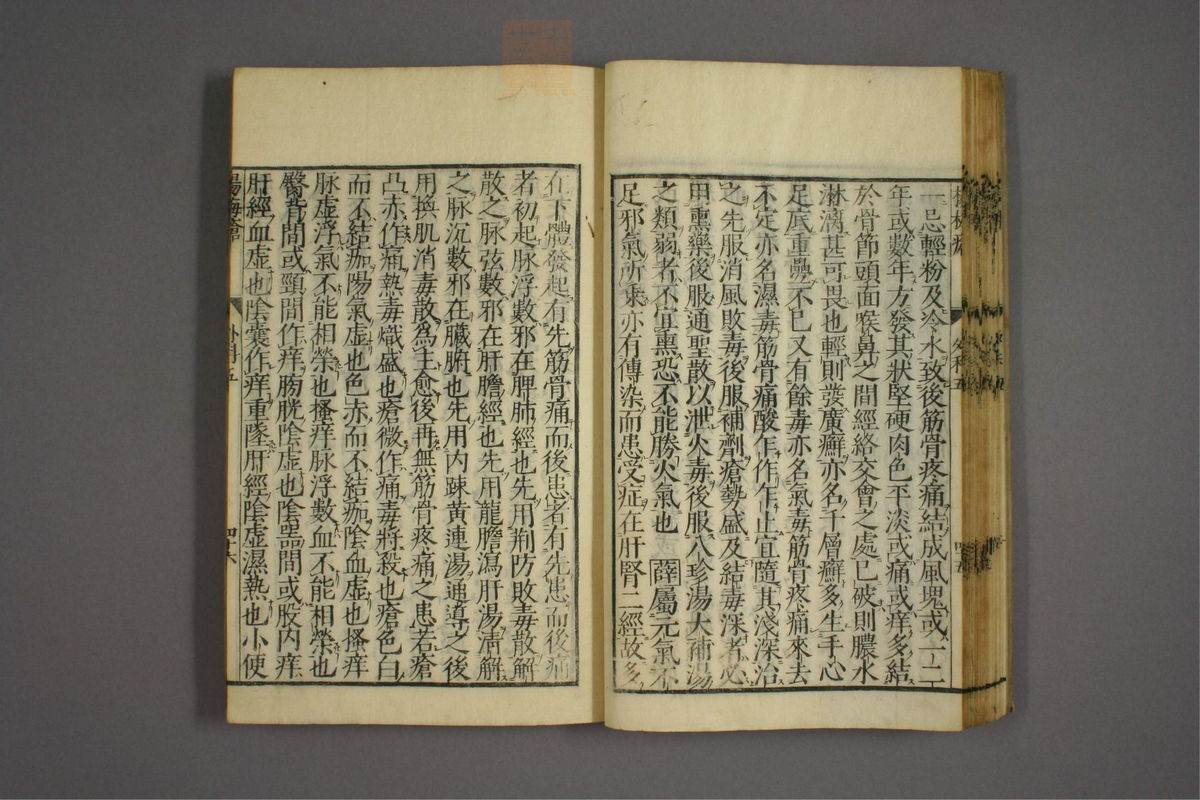 一忌輕粉及冷水致後筋骨疼痛結成風塊或一二
年或數年方發其狀堅硬肉色平淡或痛或痒多結
於骨節頭面喉鼻之間經絡交會之處已破則膿水
淋漓甚可畏也輕則發廣癬亦名千層癬多生手心
足底重疊不已又有餘毒亦名氣毒筋骨疼痛來去
不定亦名濕毒筋骨痛酸乍作乍止宜隨其淺深治
之先服消風敗毒後服補劑瘡勢盛及結毒深者必
用熏藥後服通聖散以泄火毒後服八珍湯大補湯
之類弱者不宜熏恐不能勝火氣也薛屬元氣不
足邪氣所乘亦有傳染而患受症在肝腎二經故多
在下體發起有先筋骨痛而後患者有先患而後痛
者初起脉浮數邪在脾肺經也先用荆防敗毒散解
散之脉弦數邪在肝膽經也先用龍膽瀉肝湯清解
之脉沉數邪在臟腑也先用内踈黄連湯通導之後
用換肌消毒散爲主愈後再無筋骨疼痛之患若瘡
凸赤作痛熱毒熾盛也瘡微作痛毒將殺也瘡色白
而不結痂陽氣虚也色赤而不結痂陰血虚也搔痒
脉虚浮氣不能相榮也搔痒脉浮數血不能相榮也
臀背間或頸間作痒膀胱陰虚也陰器間或股内痒
肝經血虚也陰囊作痒重墜肝經陰虚濕熱也小便
楊梅瘡
外科五
四十六